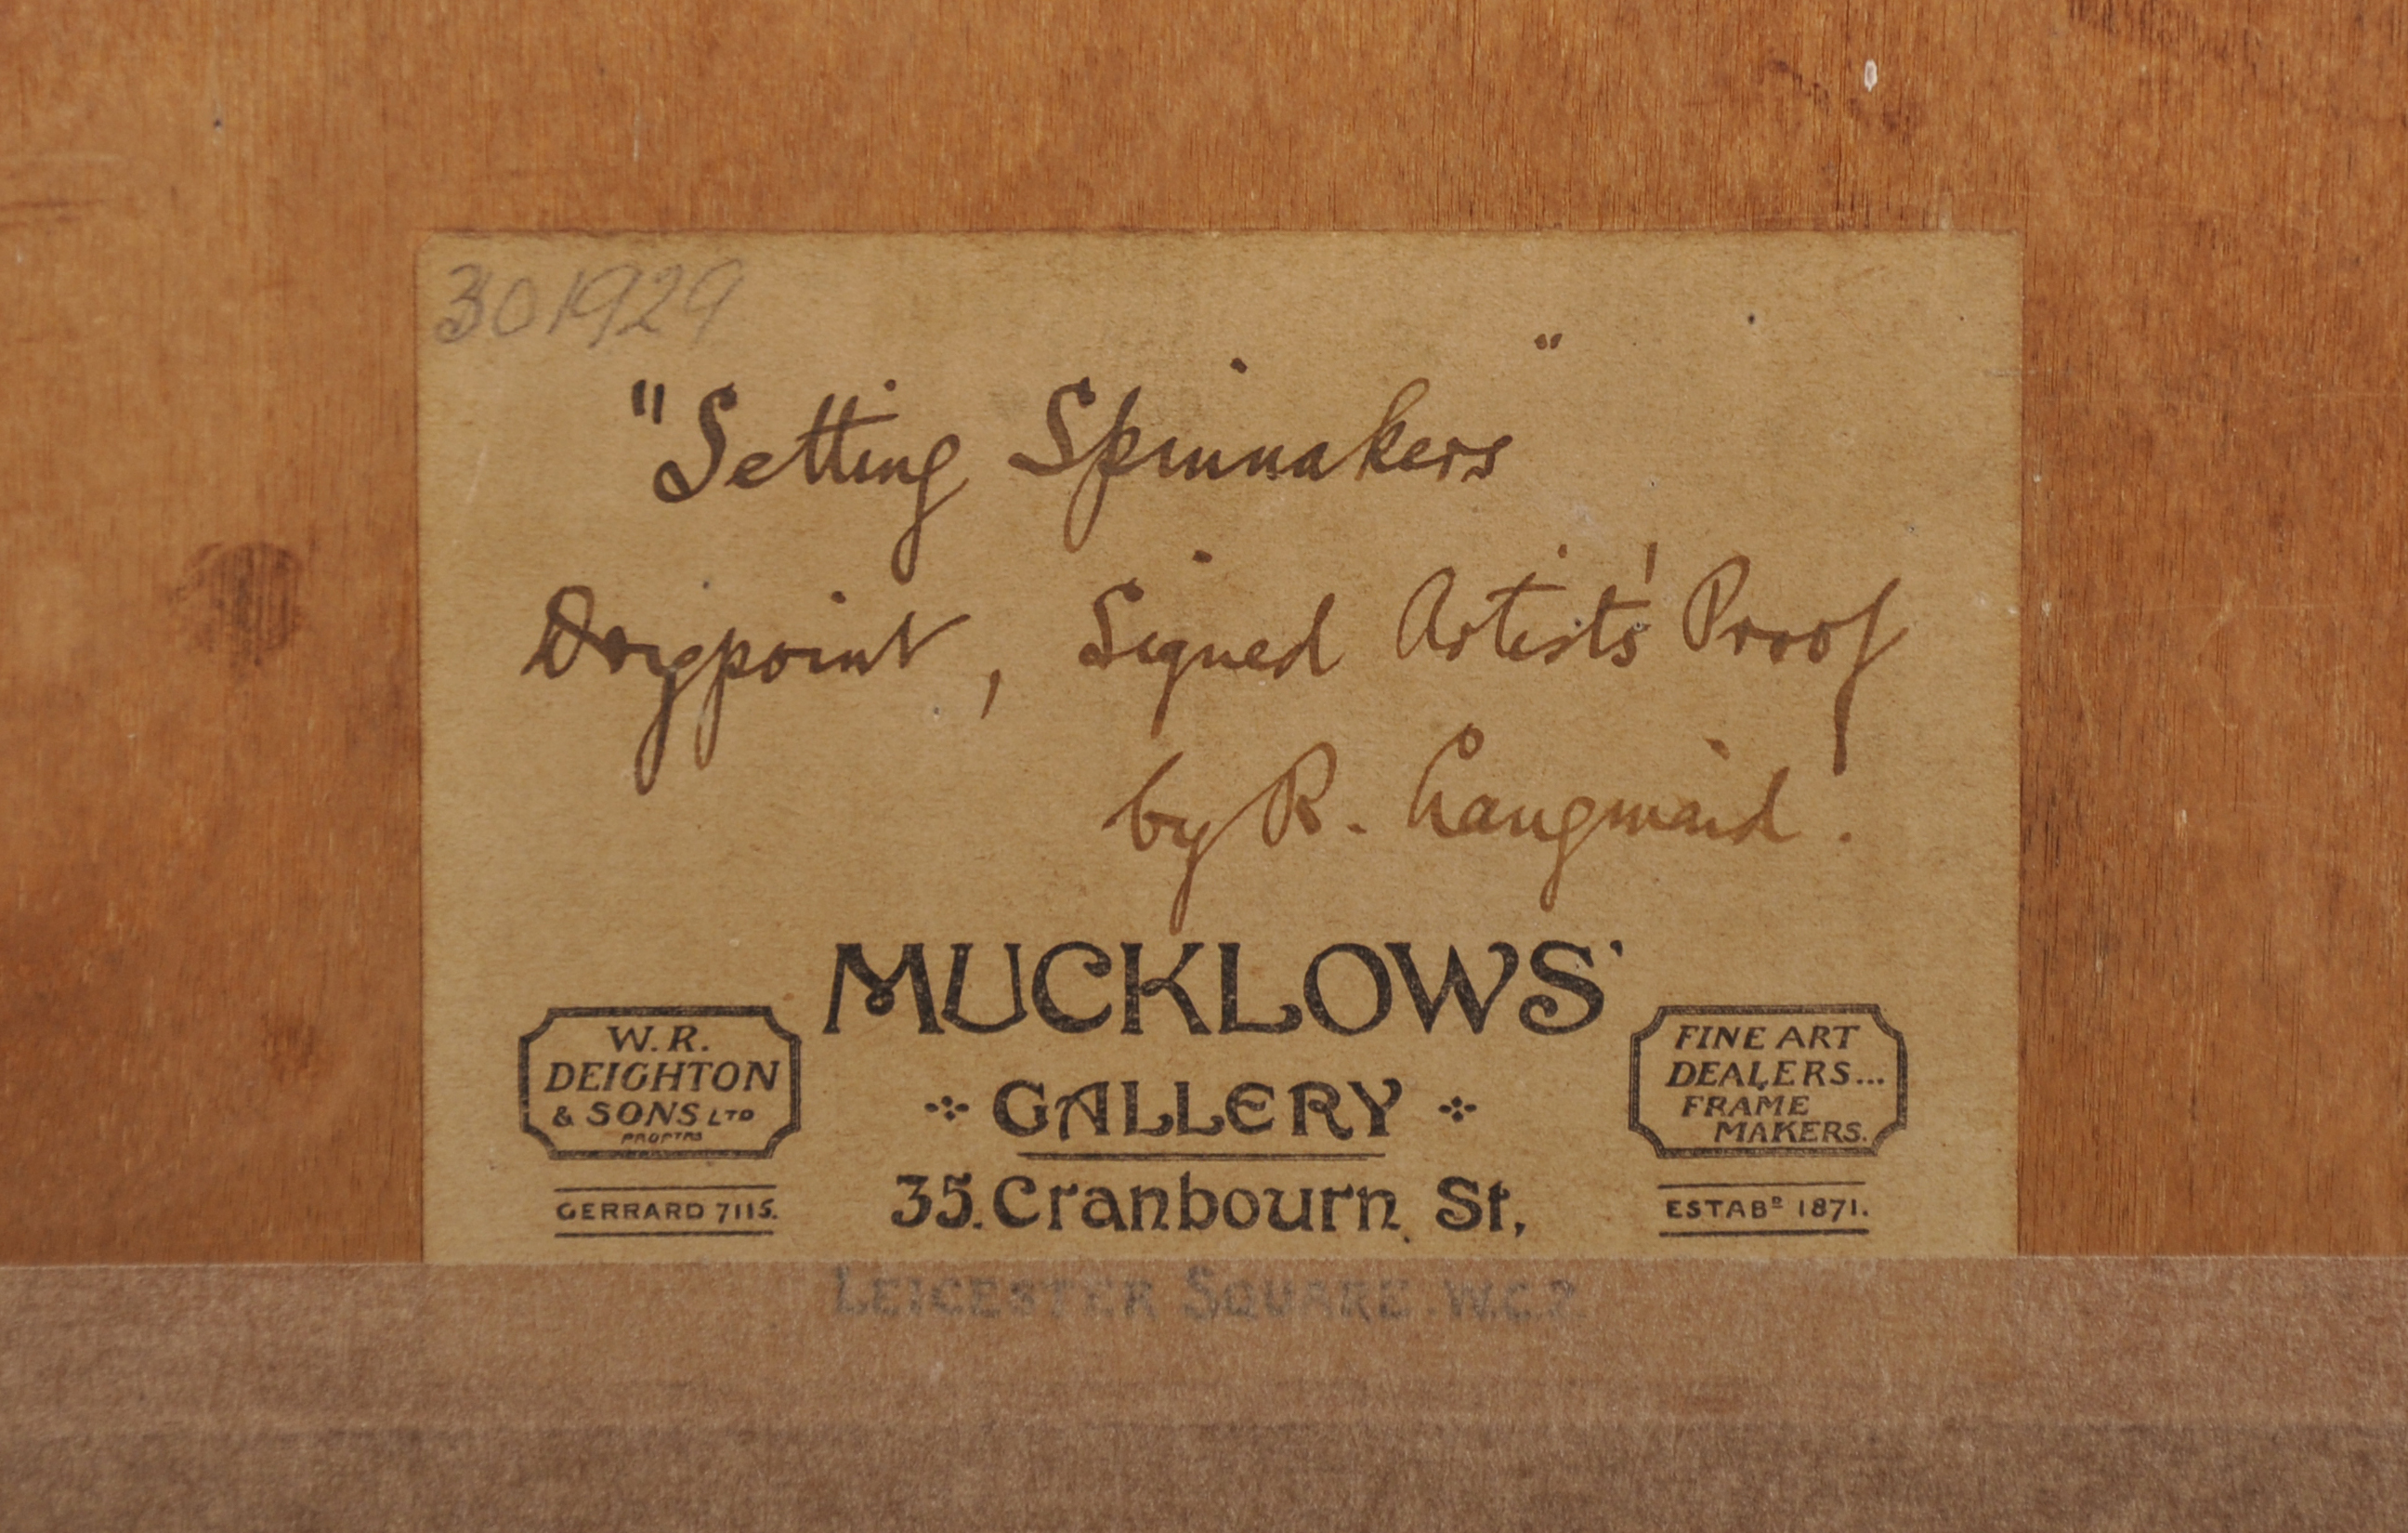 301929
"Setting Spinnakers"
Drypoint, Signed Artists' Proof
by R. Langmaid.
MUCKLOWS'
GALLERY
35. Cranbourn St,
LEICESTER SQUARE. W.C.2.
W. R.
DEIGHTON
& SONS LTD
PROPTRS
GERRARD 7115.
FINE ART
DEALERS...
FRAME
MAKERS.
ESTABD 1871.